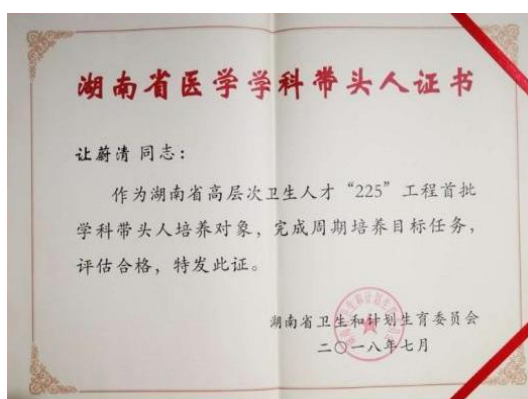 湖南省医学学科带头人证书
让蔚清 同志：
作为湖南省高层次卫生人才“225”工程首批
学科带头人培养对象，完成周期培养目标任务，
评估合格，特发此证。
湖南省卫生和计划生育委员会
二〇一八年七月